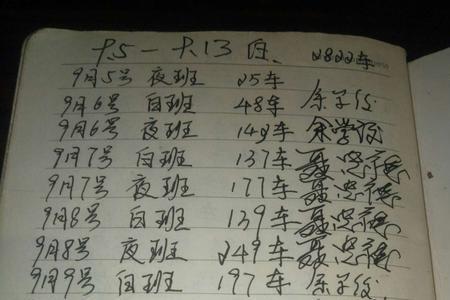 9.5—9.13白 2822车
9月5号 夜班 25车
9月6号 白班 48车 余学俊
9月6号 夜班 142车 余学俊
9月7号 白班 137车 聂忠德
9月7号 夜班 177车 聂忠德
9月8号 白班 139车 聂忠德
9月8号 夜班 249车 聂忠德
9月9号 白班 197车 余学俊